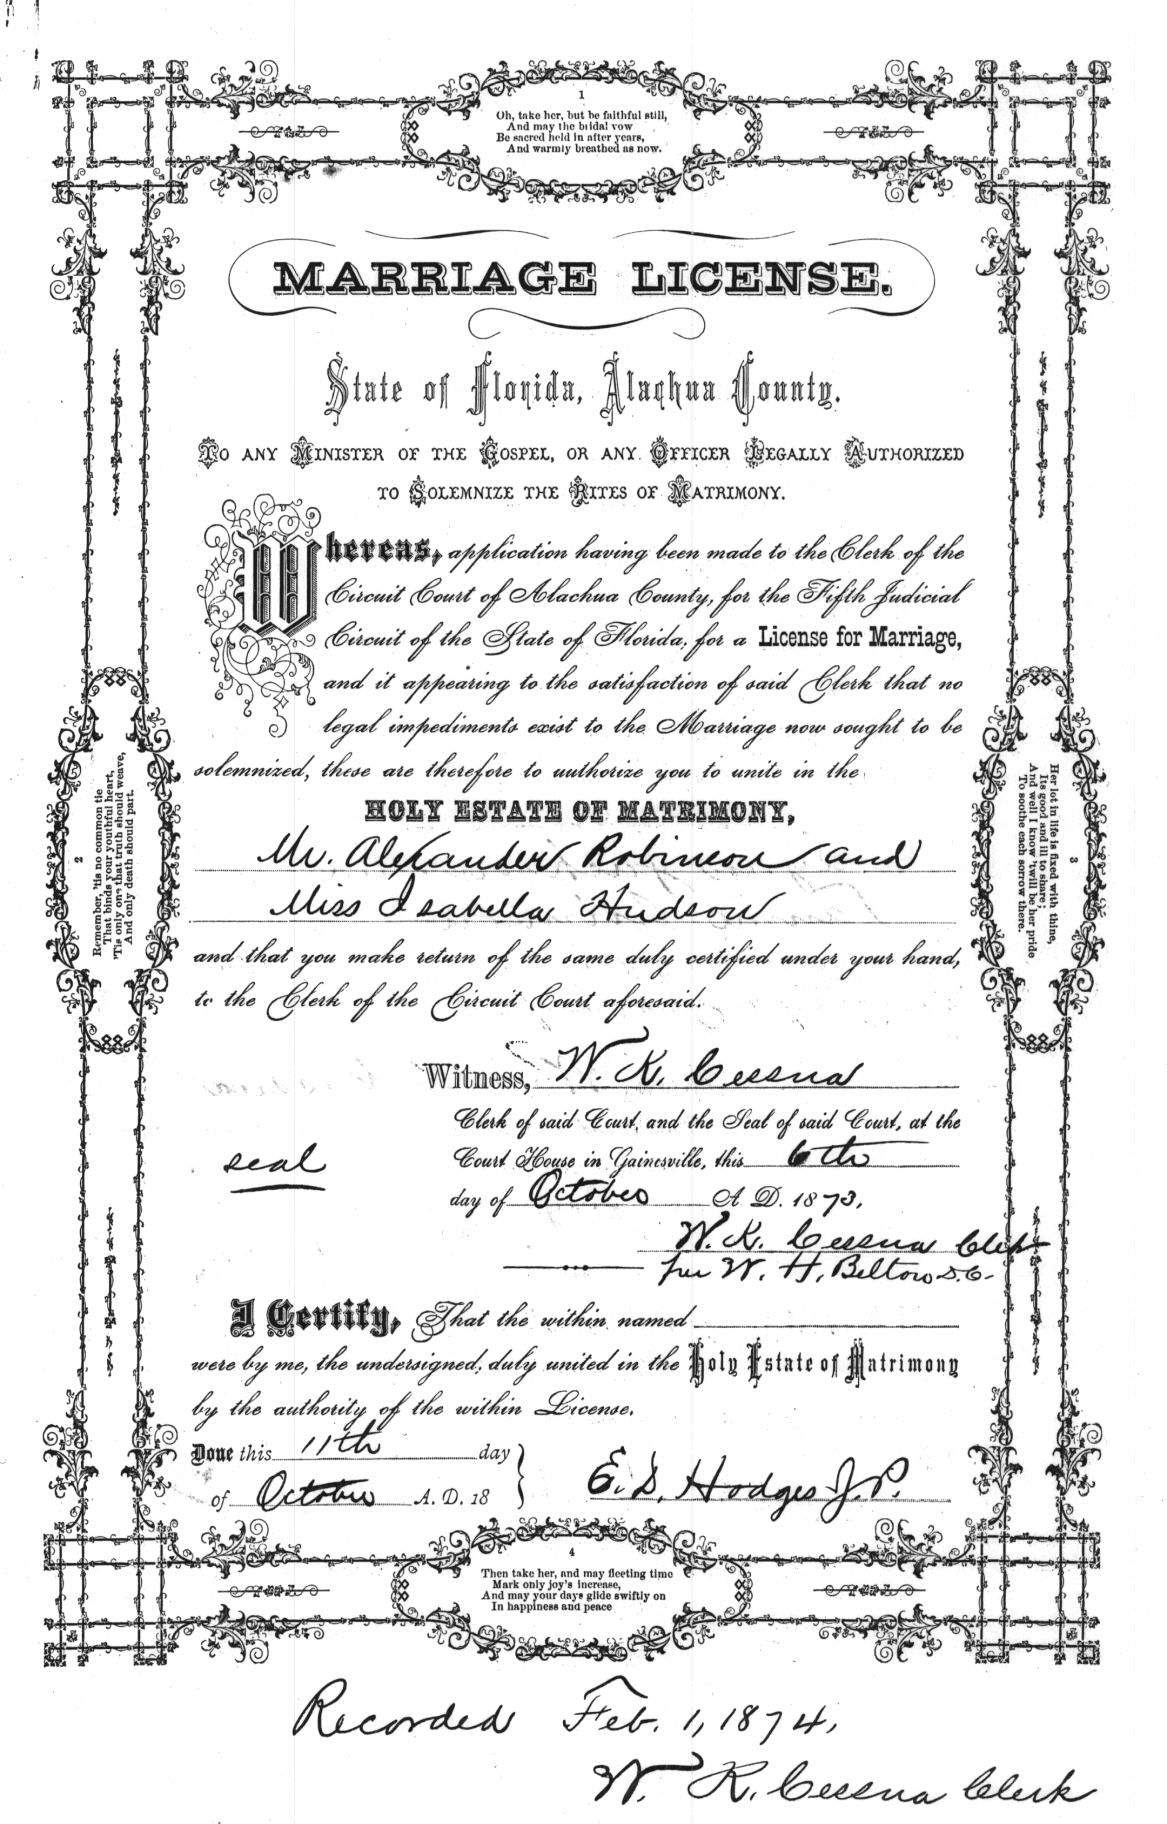 1
Oh, take her, but be faithful still,
And may the bridal vow
Be sacred held in after years,
And warmly breathed as now.
MARRIAGE LICENSE.
State of Florida, Alachua County.
TO ANY MINISTER OF THE GOSPEL, OR ANY OFFICER LEGALLY AUTHORIZED
TO SOLEMNIZE THE RITES OF MATRIMONY.
Whereas, application having been made to the Clerk of the
Circuit Court of Alachua County, for the Fifth Judicial
Circuit of the State of Florida, for a License for Marriage,
and it appearing to the satisfaction of said Clerk that no
legal impediments exist to the Marriage now sought to be
solemnized, these are therefore to authorize you to unite in the
HOLY ESTATE OF MATRIMONY,
Mr. Alexander Robinson and
Miss Isabella Hudson
and that you make return of the same duly certified under your hand,
to the Clerk of the Circuit Court aforesaid.
2
Remember, 'tis no common tie
That binds your youthful heart,
'Tis only one that truth should weave,
And only death should part.
3
Her lot in life is fixed with thine,
Its good and ill to share;
And well I know 'twill be her pride
To soothe each sorrow there.
Witness, W. K. Cessna
Clerk of said Court, and the Seal of said Court, at the
seal
Court House in Gainesville, this 6th
day of October A. D. 1873.
W. K. Cessna Clerk
per W. H. Belton D.C.
I Certify, That the within named
were by me, the undersigned, duly united in the Holy Estate of Matrimony
by the authority of the within License.
Done this 11th day
of October A. D. 18
E. D. Hodges J. P.
4
Then take her, and may fleeting time
Mark only joy's increase,
And may your days glide swiftly on
In happiness and peace
Recorded Feb. 1, 1874.
W. K. Cessna Clerk